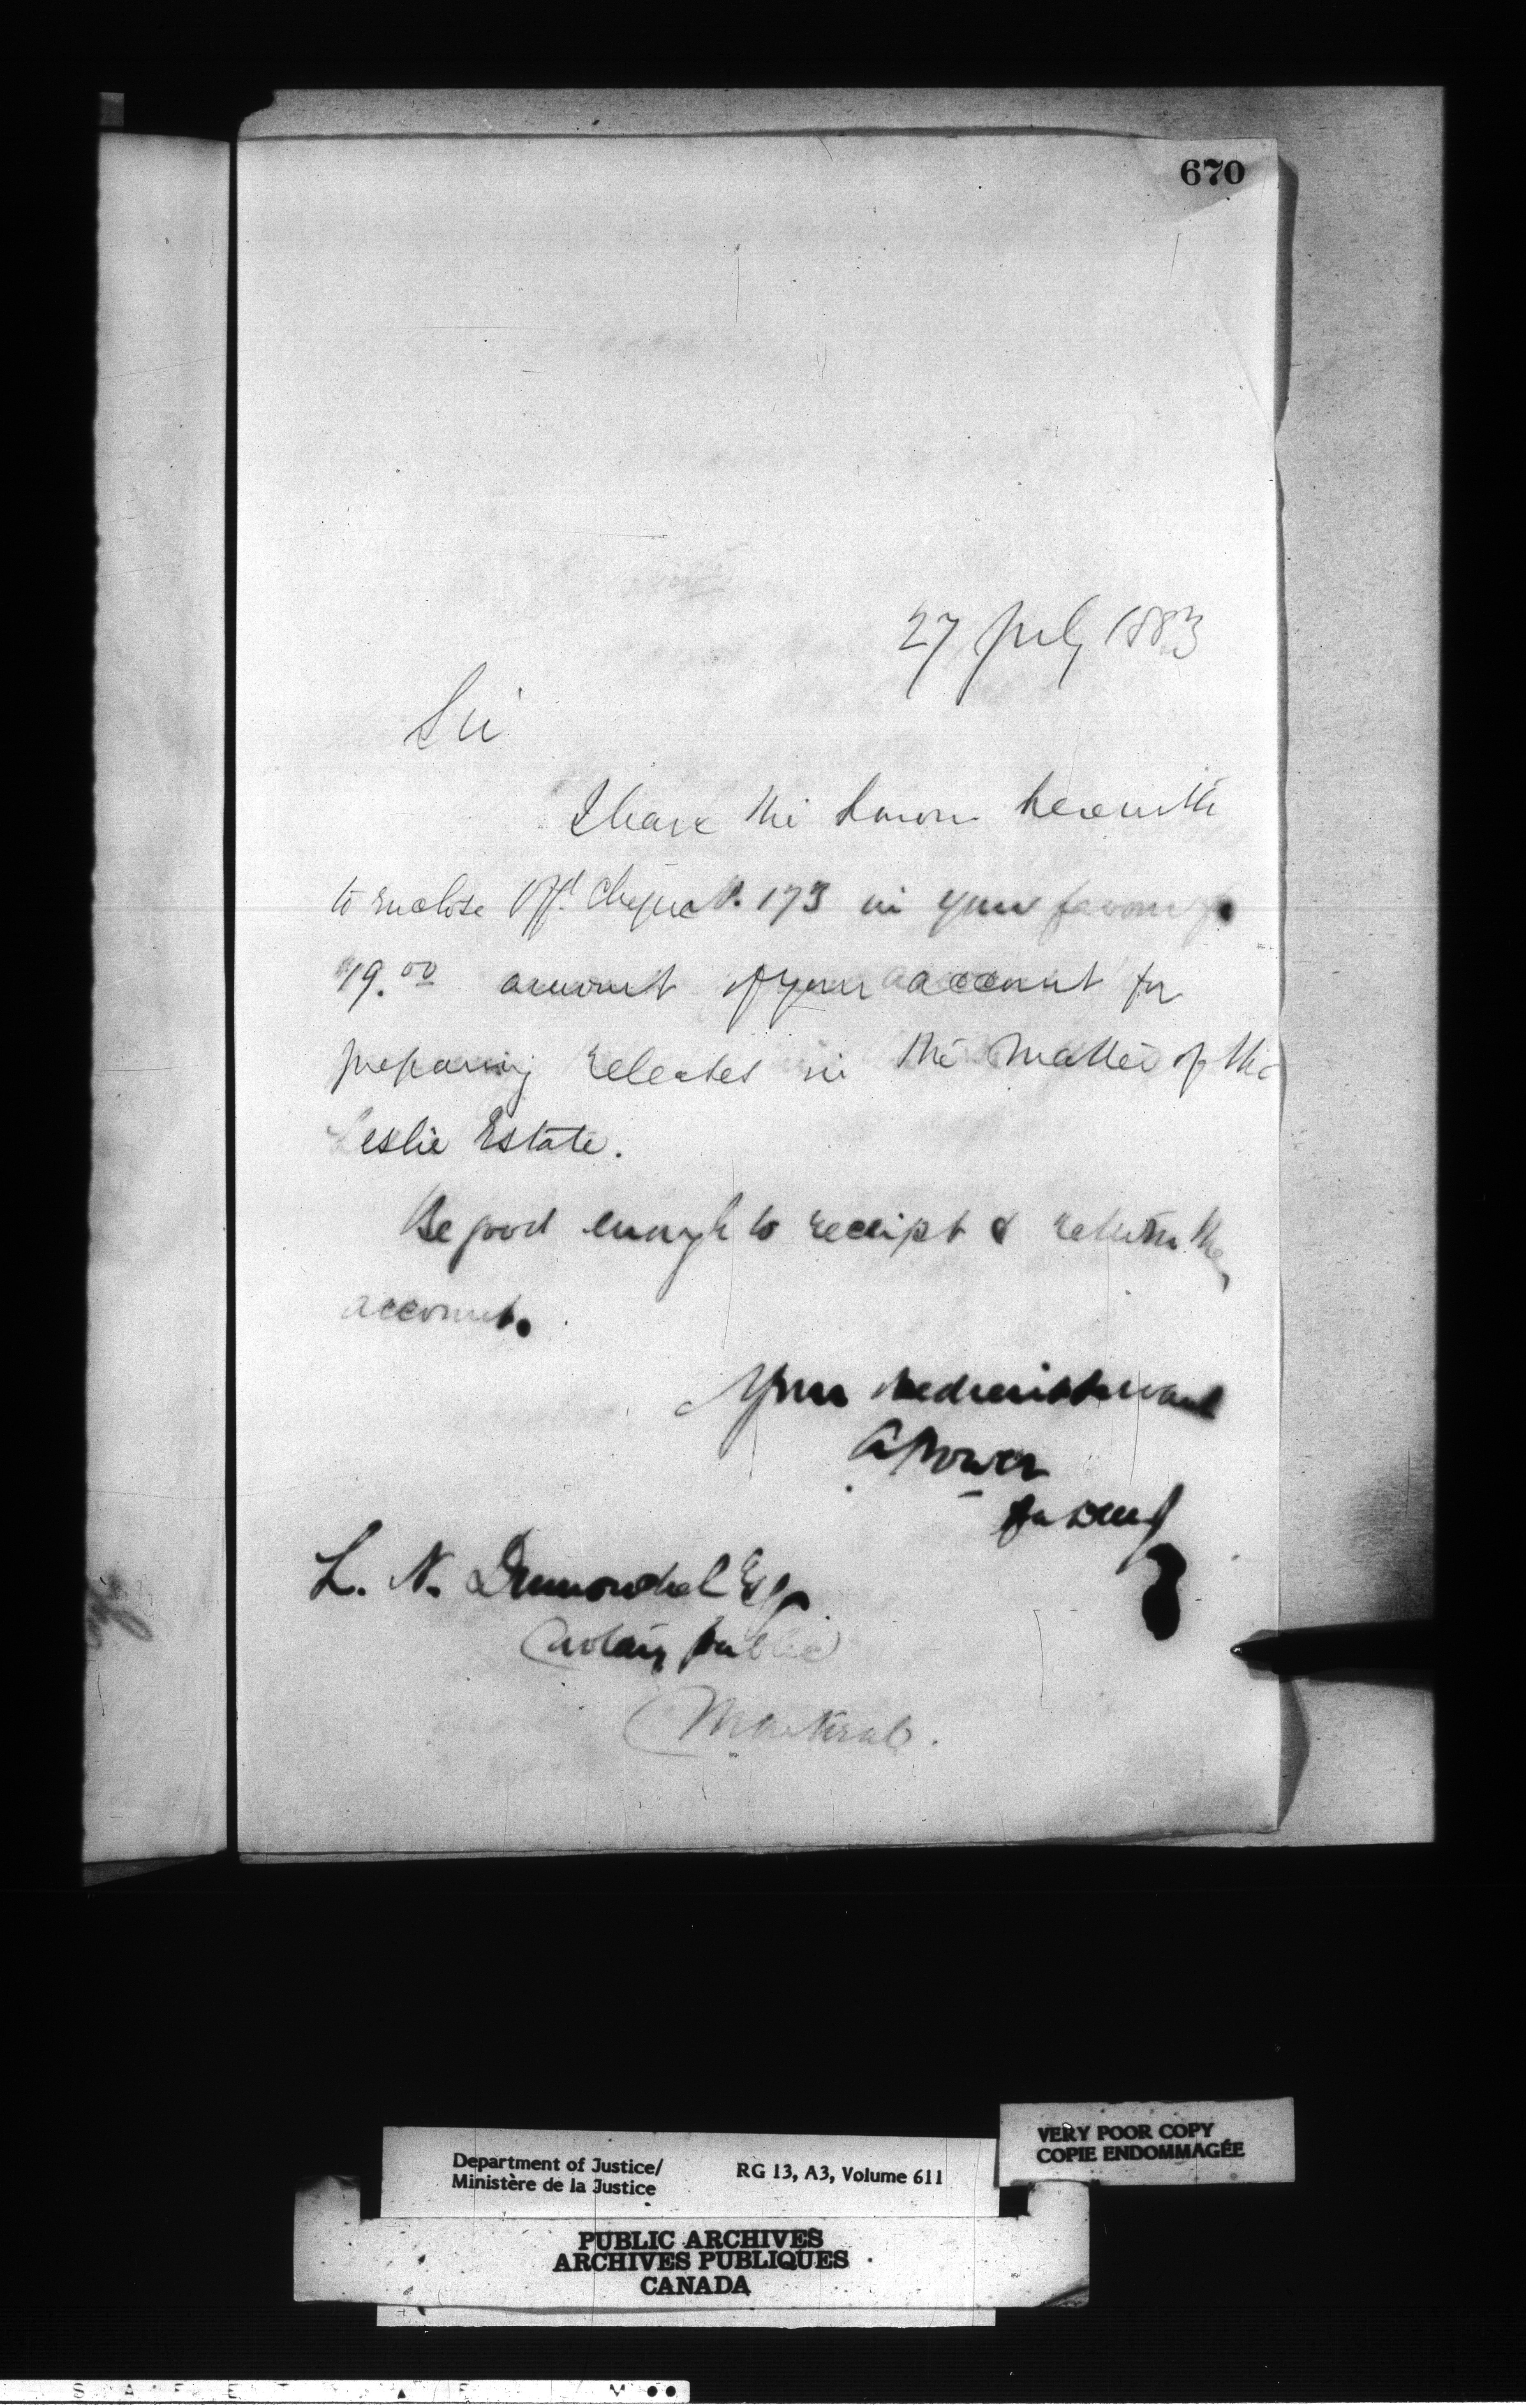 670
27 July 1883
Sir
I have the honor herewith
to enclose Off^l Cheque No. 173 in your favour for
$19.00 amount of your account for
preparing releases in the matter of the
Leslie Estate.
Be good enough to receipt & return the
account.
Your obedient servant
A Power
for
L. N. Dumouchel Esq
Notary Public
Montreal.
Department of Justice/
Ministère de la Justice
RG 13, A3, Volume 611
VERY POOR COPY
COPIE ENDOMMAGÉE
PUBLIC ARCHIVES
ARCHIVES PUBLIQUES
CANADA